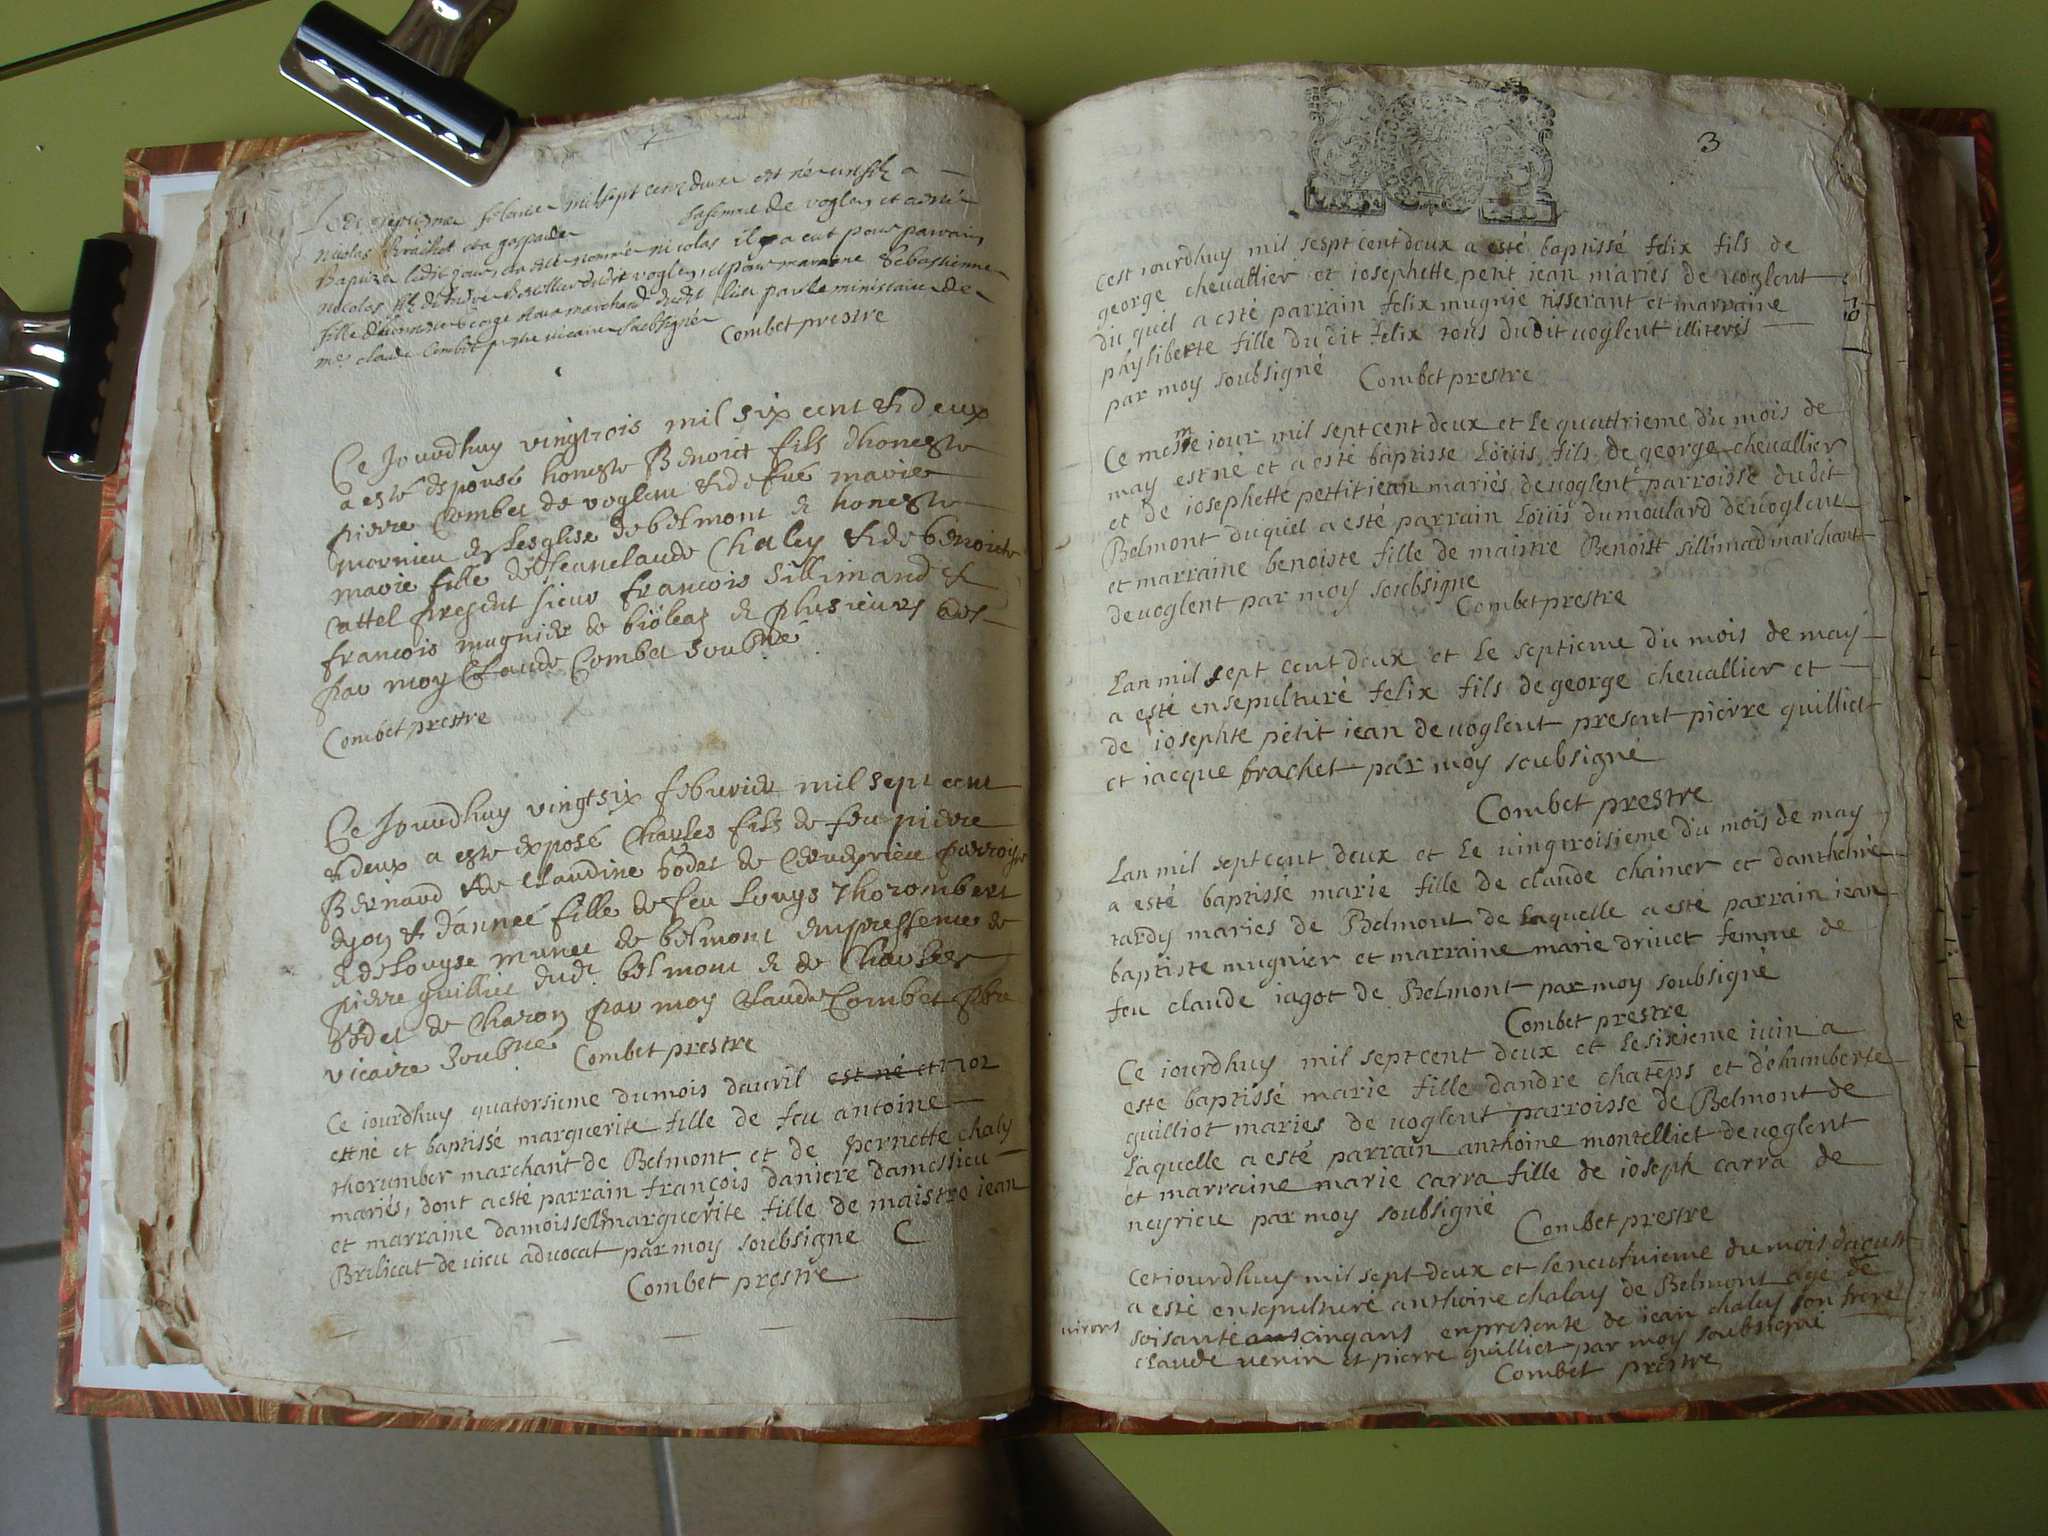 mil sept cent deux est né un fils a
nicolas Brachet et a gasparde
sa femme de voglen et a esté
Baptizé ledit jour nommé nicolas il a eut pour parrain
nicolas dudit voglen, et pour marraine Sebastienne
fille marchand dudit lieu par le ministaire de
mre claude Combet prestre vicaire soubsigné
Combet prestre
Ce Jourdhuy vingtrois mil six cent et deux
a esté espousé honeste Benoict fils dhoneste
pierre Combet de voglent et de fue marie
mornieu en lesglise de belmont et honeste
marie fille de Jeanclaude Chaley et de benoicte
attel present sieur francois Sillimand et
francois mugnier de bioleaz et plusieurs
par moy Claude Combet soubné
Combet prestre
Ce Jourdhuy vingtsix febvrier mil sept cent
et deux a esté exposé Charles fils de feu pierre
Bernard et de Claudine bodet de
et dannee fille de feu Louys Thorombert
et de Louyse munet de belmont en presence de
pierre guilliet dudt belmont et de Charles
bodet de Charon par moy Claude Combet pbre
vicaire soubné
Combet prestre
Ce iourdhuy quatorsieme du mois dauvril est né et 1702
est né et baptissé marguerite fille de feu antoine
thorumber marchant de Belmont et de pernette chaly
mariés, dont a esté parrain francois daniere damessieu
et marraine damoisselle marguerite fille de maistre iean
Brilicat de vieu advocat par moy soubsigne C
Combet prestre
3
Cest iourdhuy mil sespt cent deux a esté baptissé felix fils de
george chevallier et iosephette petit iean mariés de voglent
du quel a esté parrain felix mugnie tisserant et marraine
phyliberte fille du dit felix tous du dit voglent illiterés
par moy soubsigné
Combet prestre
Ce mesme iour mil sept cent deux et le quattrieme du mois de
may est né et a esté baptisse Loüis fils de george chevallier
et de iosephette pettit iean mariés de voglent parroisse du dit
Belmont duquel a esté parrain Loüis dumoulard de voglent
et marraine benoiste fille de maistre Benoist sillimad marchant
de voglent par moy soubsigne
Combet prestre
Lan mil sept cent deux et le septieme du mois de may
a esté ensepulturé felix fils de george chevallier et
de iosephte petit iean de voglent present pierre guilliet
et iacque brachet par moy soubsigné
Combet prestre
Lan mil sept cent deux et le vingtroisieme du mois de may
a esté baptissé marie fille de claude chainer et danthoine
tardy mariés de Belmont de Laquelle a esté parrain iean
baptiste mugnier et marraine marie drivet femme de
feu claude iagot de Belmont par moy soubsigné
Combet prestre
Ce iourdhuy mil sept cent deux et le sixieme iuin a
esté baptissé marie fille dandre chateps et dehumberte
guilliot mariés de voglent parroisse de Belmont de
Laquelle a esté parrain anthoine montelliet de voglent
et marraine marie carra fille de ioseph carra de
neyrieu par moy soubsigné
Combet prestre
Cet iourdhuy mil sept deux et le neufvieme du mois daoust
a esté ensepulturé anthoine chalay de Belmont agé de
soisante cinq ans en presente de iean chaley son frere
claude venin et pierre guilliet par moy soubsigné
Combet prestre